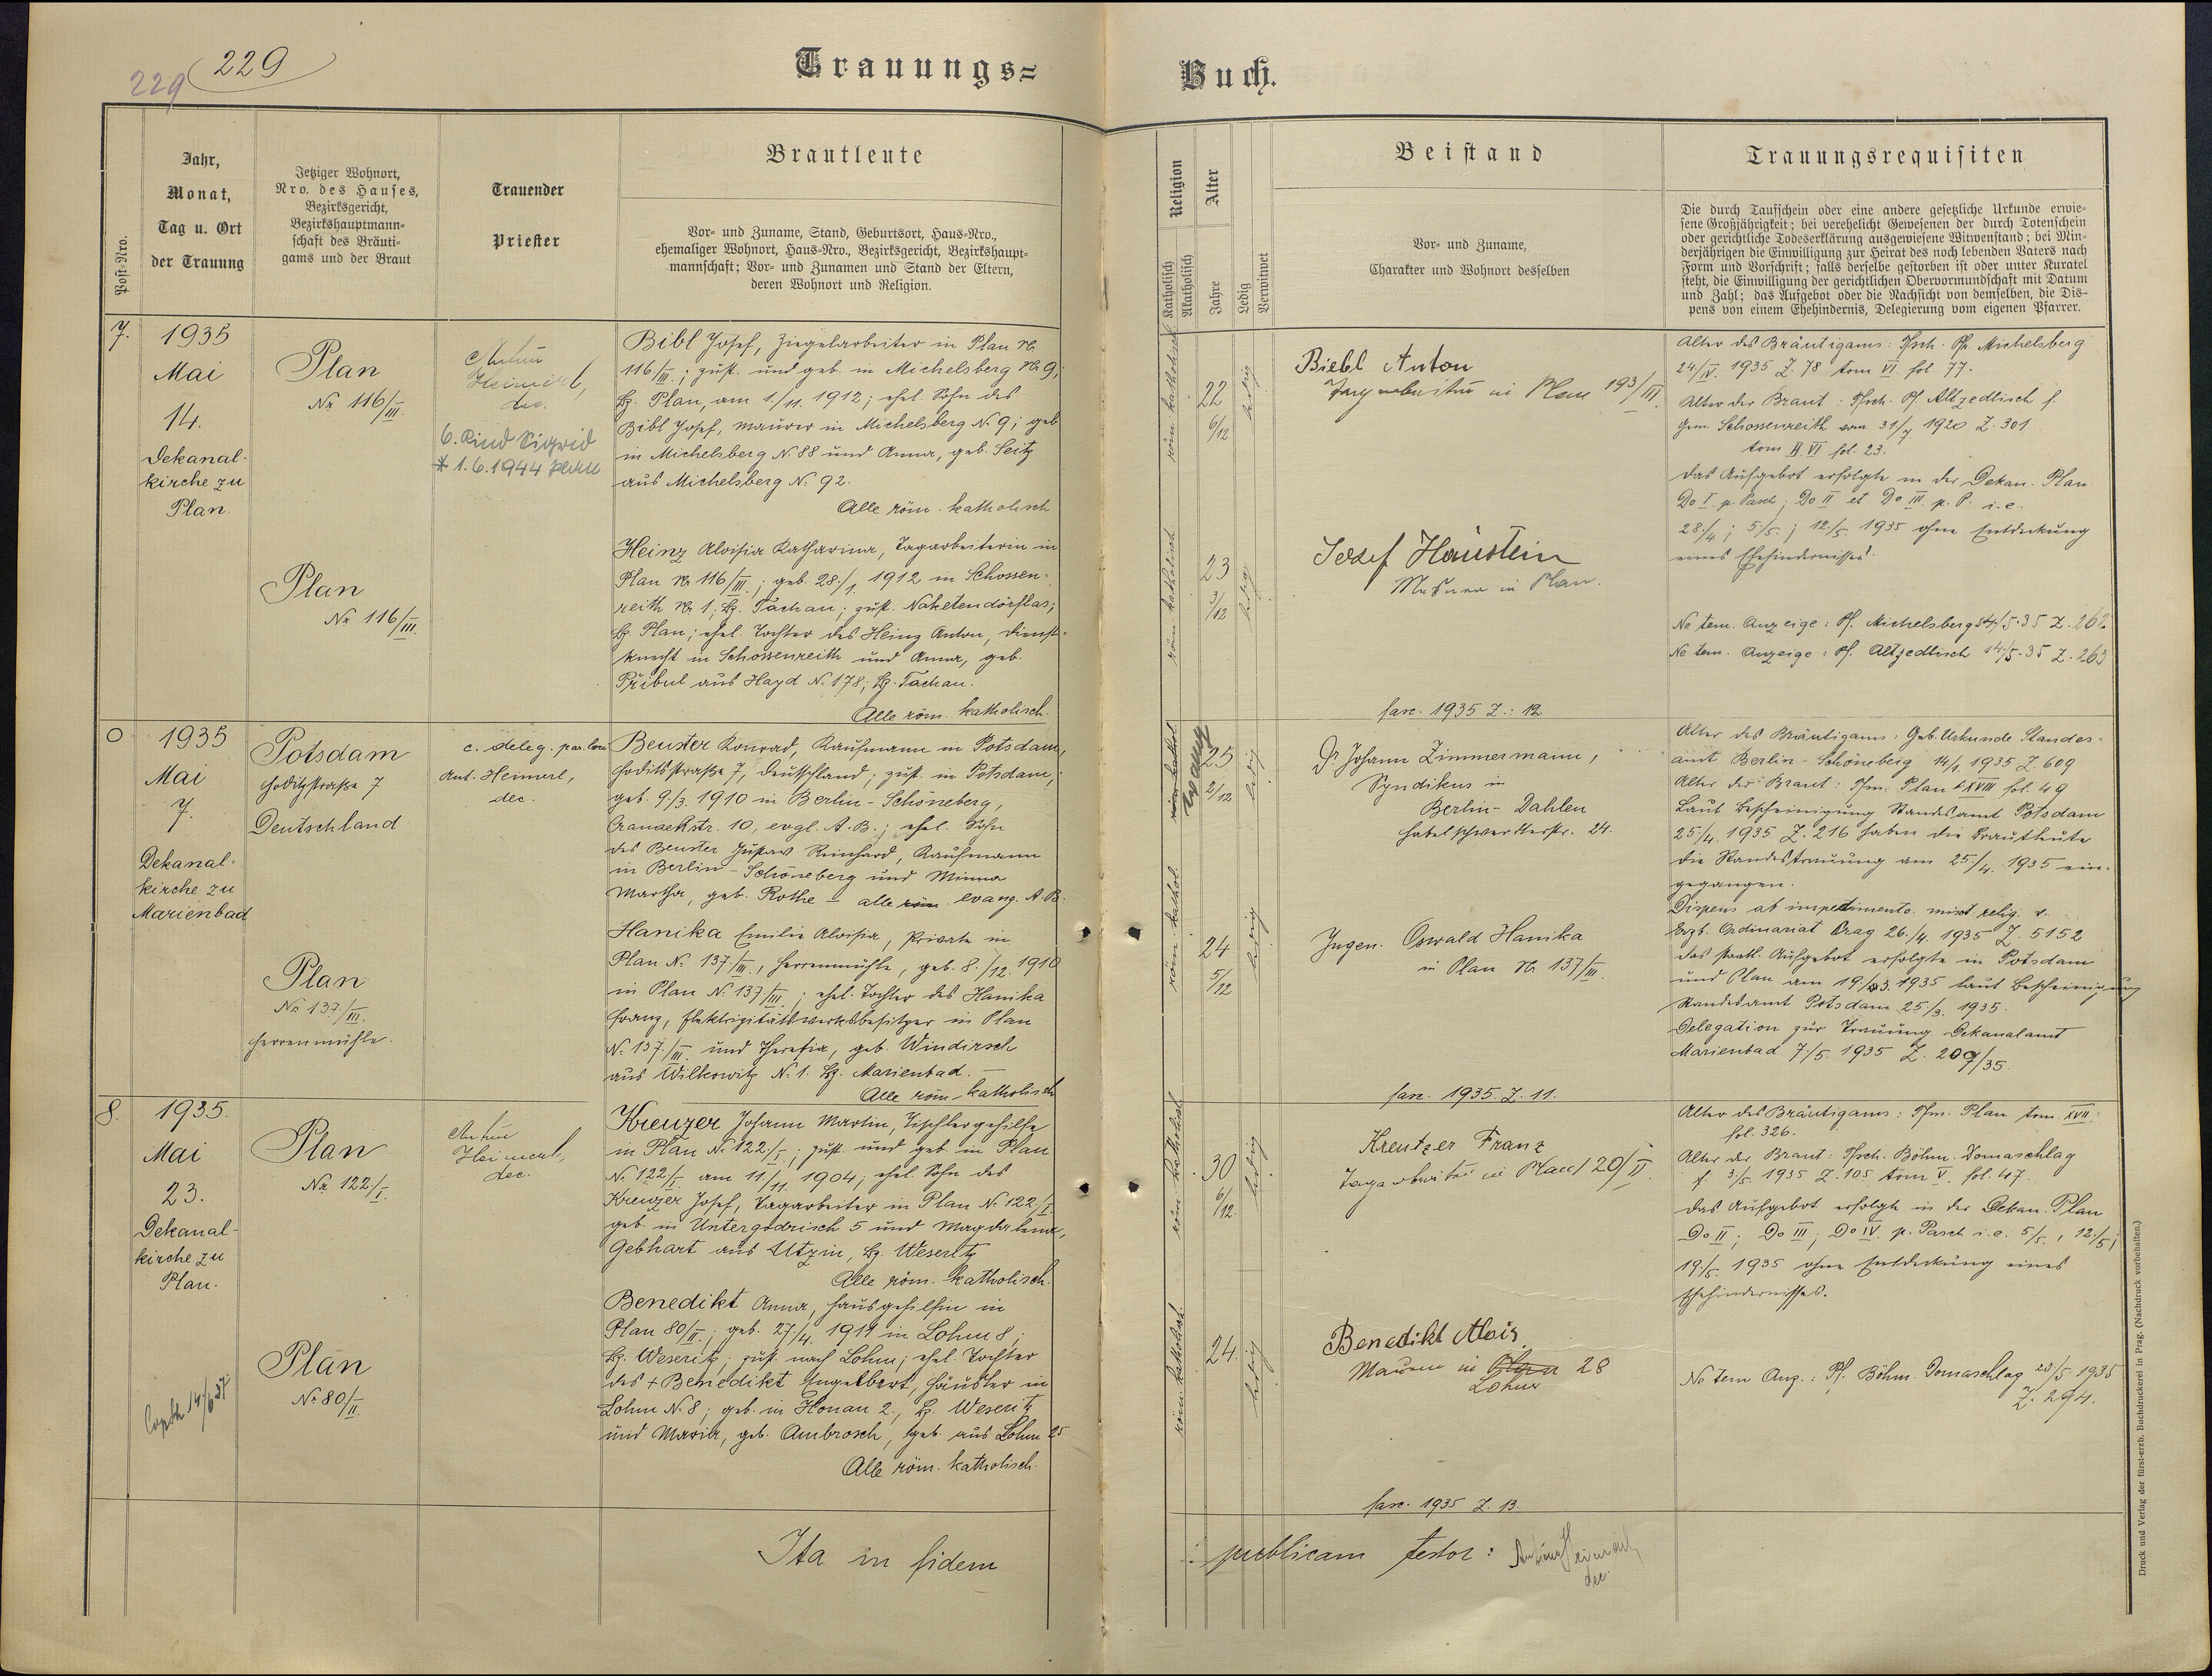 229
229
Trauungs=
Buch.
Post-Nro.
Jahr,
Monat,
Tag u. Ort
der Trauung
Jetziger Wohnort,
Nro. des Hauses,
Bezirksgericht,
Bezirkshauptmann-
schaft des Bräuti-
gams und der Braut
Trauender
Priester
Brautleute
Vor- und Zuname, Stand, Geburtsort, Haus-Nro.,
ehemaliger Wohnort, Haus-Nro., Bezirksgericht, Bezirkshaupt-
mannschaft; Vor- und Zunamen und Stand der Eltern,
deren Wohnort und Religion.
Religion
Katholisch
Akatholisch
Alter
Jahre
Ledig
Verwitwet
Beistand
Vor- und Zuname,
Charakter und Wohnort desselben
Trauungsrequisiten
Die durch Taufschein oder eine andere gesetzliche Urkunde erwie-
sene Großjährigkeit; bei verehelicht Gewesenen der durch Totenschein
oder gerichtliche Todeserklärung ausgewiesene Witwenstand; bei Min-
derjährigen die Einwilligung zur Heirat des noch lebenden Vaters nach
Form und Vorschrift; falls derselbe gestorben ist oder unter Kuratel
steht, die Einwilligung der gerichtlichen Obervormundschaft mit Datum
und Zahl; das Aufgebot oder die Nachsicht von demselben, die Dis-
pens von einem Ehehindernis, Delegierung vom eigenen Pfarrer.
7.
1935
Mai
14.
Dekanal-
kirche zu
Plan.
Plan
Nr 116/III.
Plan
Nr 116/III.
Anton
Heimerl,
dec.
6. Kind Sigrid
* 1.6.1944 Plan
Bibl Josef, Ziegelarbeiter in Plan Nr
116/III.; zust. und geb. in Michelsberg Nr 9;
Bz. Plan, am 1./11. 1912; ehel. Sohn des
Bibl Josef, Maurer in Michelsberg N. 9; geb
in Michelsberg N. 88 und Anna, geb. Seitz
aus Michelsberg N. 92.
Alle röm. katholisch
Heinz Aloisia Katharina, Tagarbeiterin in
Plan Nr 116/III.; geb. 28./1. 1912 in Schossen-
reith Nr 1, Bz. Tachau; zust. Naketendörflas;
Bz. Plan; ehel. Tochter des Heinz Anton, Dienst-
knecht in Schossenreith und Anna, geb.
Přibul aus Hayd N. 178; Bz. Tachau.
Alle röm. katholisch.
röm. katholisch
22
6/12
ledig
röm. katholisch
23
3/12
ledig
Biebl Anton
Tagarbeiter in Plan 193/III.
Josef Haustein
Mesner in Plan.
fasc. 1935 Z.: 12
Alter des Bräutigams: Tfsch. Pf. Michelsberg
24/IV. 1935 Z. 78 tom VI. fol. 77.
Alter der Braut: Tfsch. Pf. Altzedlisch f.
Gem. Schossenreith vom 31/7 1920 Z. 301
tom VI fol. 23.
Das Aufgebot erfolgte in der Dekan. Plan
Do I p. Pasch; Do II et Do III p. P. i.e.
28./4.; 5./5.; 12./5. 1935 ohne Entdeckung
eines Ehehindernisses.
Ne tem. Anzeige: Pf. Michelsberg 14/5.35 Z. 262
Ne tem. Anzeige: Pf. Altzedlisch 14/5.35 Z. 263
0
1935
Mai
7.
Dekanal-
kirche zu
Marienbad
Potsdam
Hoditzstraße 7
Deutschland
Plan
Nr 137/III.
Herrenmühle.
c. deleg. par. loci
Ant. Heimerl,
dec.
Beuster Konrad, Kaufmann in Potsdam,
Hoditzstraße 7, Deutschland; zust. in Potsdam,
geb. 9./3. 1910 in Berlin-Schöneberg,
10, evgl. A.B.; ehel. Sohn
des Beuster Gustav Reinhard, Kaufmann
in Berlin-Schöneberg und Minna
Martha, geb. Rothe – alle röm. evang. A.B.
Hanika Emilie Aloisia, Private in
Plan N. 137/III., Herrenmühle, geb. 8./12. 1910
in Plan N. 137/III.; ehel. Tochter des Hanika
Franz, Elektrizitätswerksbesitzer in Plan
N. 137/III. und Theresia, geb. Windirsch
aus Wilkowitz N. 1. Bz. Marienbad. –
Alle röm-katholisch
röm. kathol.
evang.
25
2/12
ledig
röm. kathol.
24
5/12
ledig
Dr. Johann Zimmermann,
Syndikus in
Berlin-Dahlen
Habelschwerdterstr. 24.
Ingen. Oswald Hanika
in Plan Nr 137/III.
fasc. 1935. Z. 11.
Alter des Bräutigams: Geb. Urkunde Standes-
amt Berlin-Schöneberg 14/1. 1935 Z. 609
Alter der Braut: Tfm. Plan t. XVIII fol. 49
Laut Bescheinigung Standesamt Potsdam
25./4. 1935 Z. 216 haben die Brautleute
die Standestrauung am 25./4. 1935 ein-
gegangen.
Dispens ab impedimento mixt. relig. v.
Erzb. Ordinariat Prag 26./4. 1935 Z. 5152
Das staatl. Aufgebot erfolgte in Potsdam
und Plan am 19./3. 1935 laut Bescheinigung
Standesamt Potsdam 25/3. 1935.
Delegation zur Trauung Dekanalamt
Marienbad 7/5. 1935 Z. 209/35.
8.
1935.
Mai
23.
Dekanal-
kirche zu
Plan.
14/6 37
Plan
Nr 122/I.
Plan
Nr 80/II.
Anton
Heimerl,
dec.
Kreuzer Johann Martin, Tischlergehilfe
in Plan N. 122/I.; zust. und geb. in Plan
N. 122/I. am 11./11. 1904; ehel. Sohn des
Kreuzer Josef, Tagarbeiter in Plan N. 122/I.
geb. in Untergodrisch 5 und Magdalena,
Gebhart aus Utzin, Bz. Weseritz
Alle röm. katholisch.
Benedikt Anna, Hausgehilfin in
Plan 80/II.; geb. 27./4. 1911 in Lohm 8;
Bz. Weseritz; zust. nach Lohm; ehel. Tochter
des + Benedikt Engelbert, Häusler in
Lohm N. 8; geb. in Honau 2., Bz. Weseritz
und Maria, geb. Ambrosch, geb. aus Lohm 25
Alle röm. katholisch.
röm. katholisch
30
6/12.
ledig
röm. katholisch
24.
ledig
Kreutzer Franz
Tagarbeiter in Plan 120/II
Benedikt Alois
Maurer in 28
Lohm
fasc. 1935 Z. 13.
Alter des Bräutigams: Tfm. Plan tom. XVII.
fol. 326.
Alter der Braut: Tfsch. Böhm. Domaschlag
f. 3/5. 1935 Z. 105 tom V. fol. 47.
Das Aufgebot erfolgte in der Dekan. Plan
Do II; Do III; Do IV. p. Pasch i.e. 5/5., 12./5;
19./5. 1935 ohne Entdeckung eines
Ehehindernisses.
Ne tem Anz.: Pf. Böhm. Domaschlag 23/5 1935
Z. 294.
Ita in fidem
publicam testor: Anton Heimerl,
dec.
Druck und Verlag der fürst-erzb. Buchdruckerei in Prag. (Nachdruck vorbehalten.)